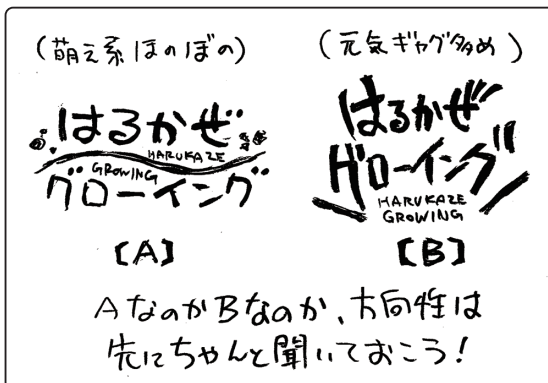 (萌え系ほのぼの)
はるかぜ
HARUKAZE
GROWING
グローイング
[A]
(元気ギャグ多め)
はるかぜ
グローイング
HARUKAZE
GROWING
[B]
AなのかBなのか、方向性は
先にちゃんと聞いておこう!